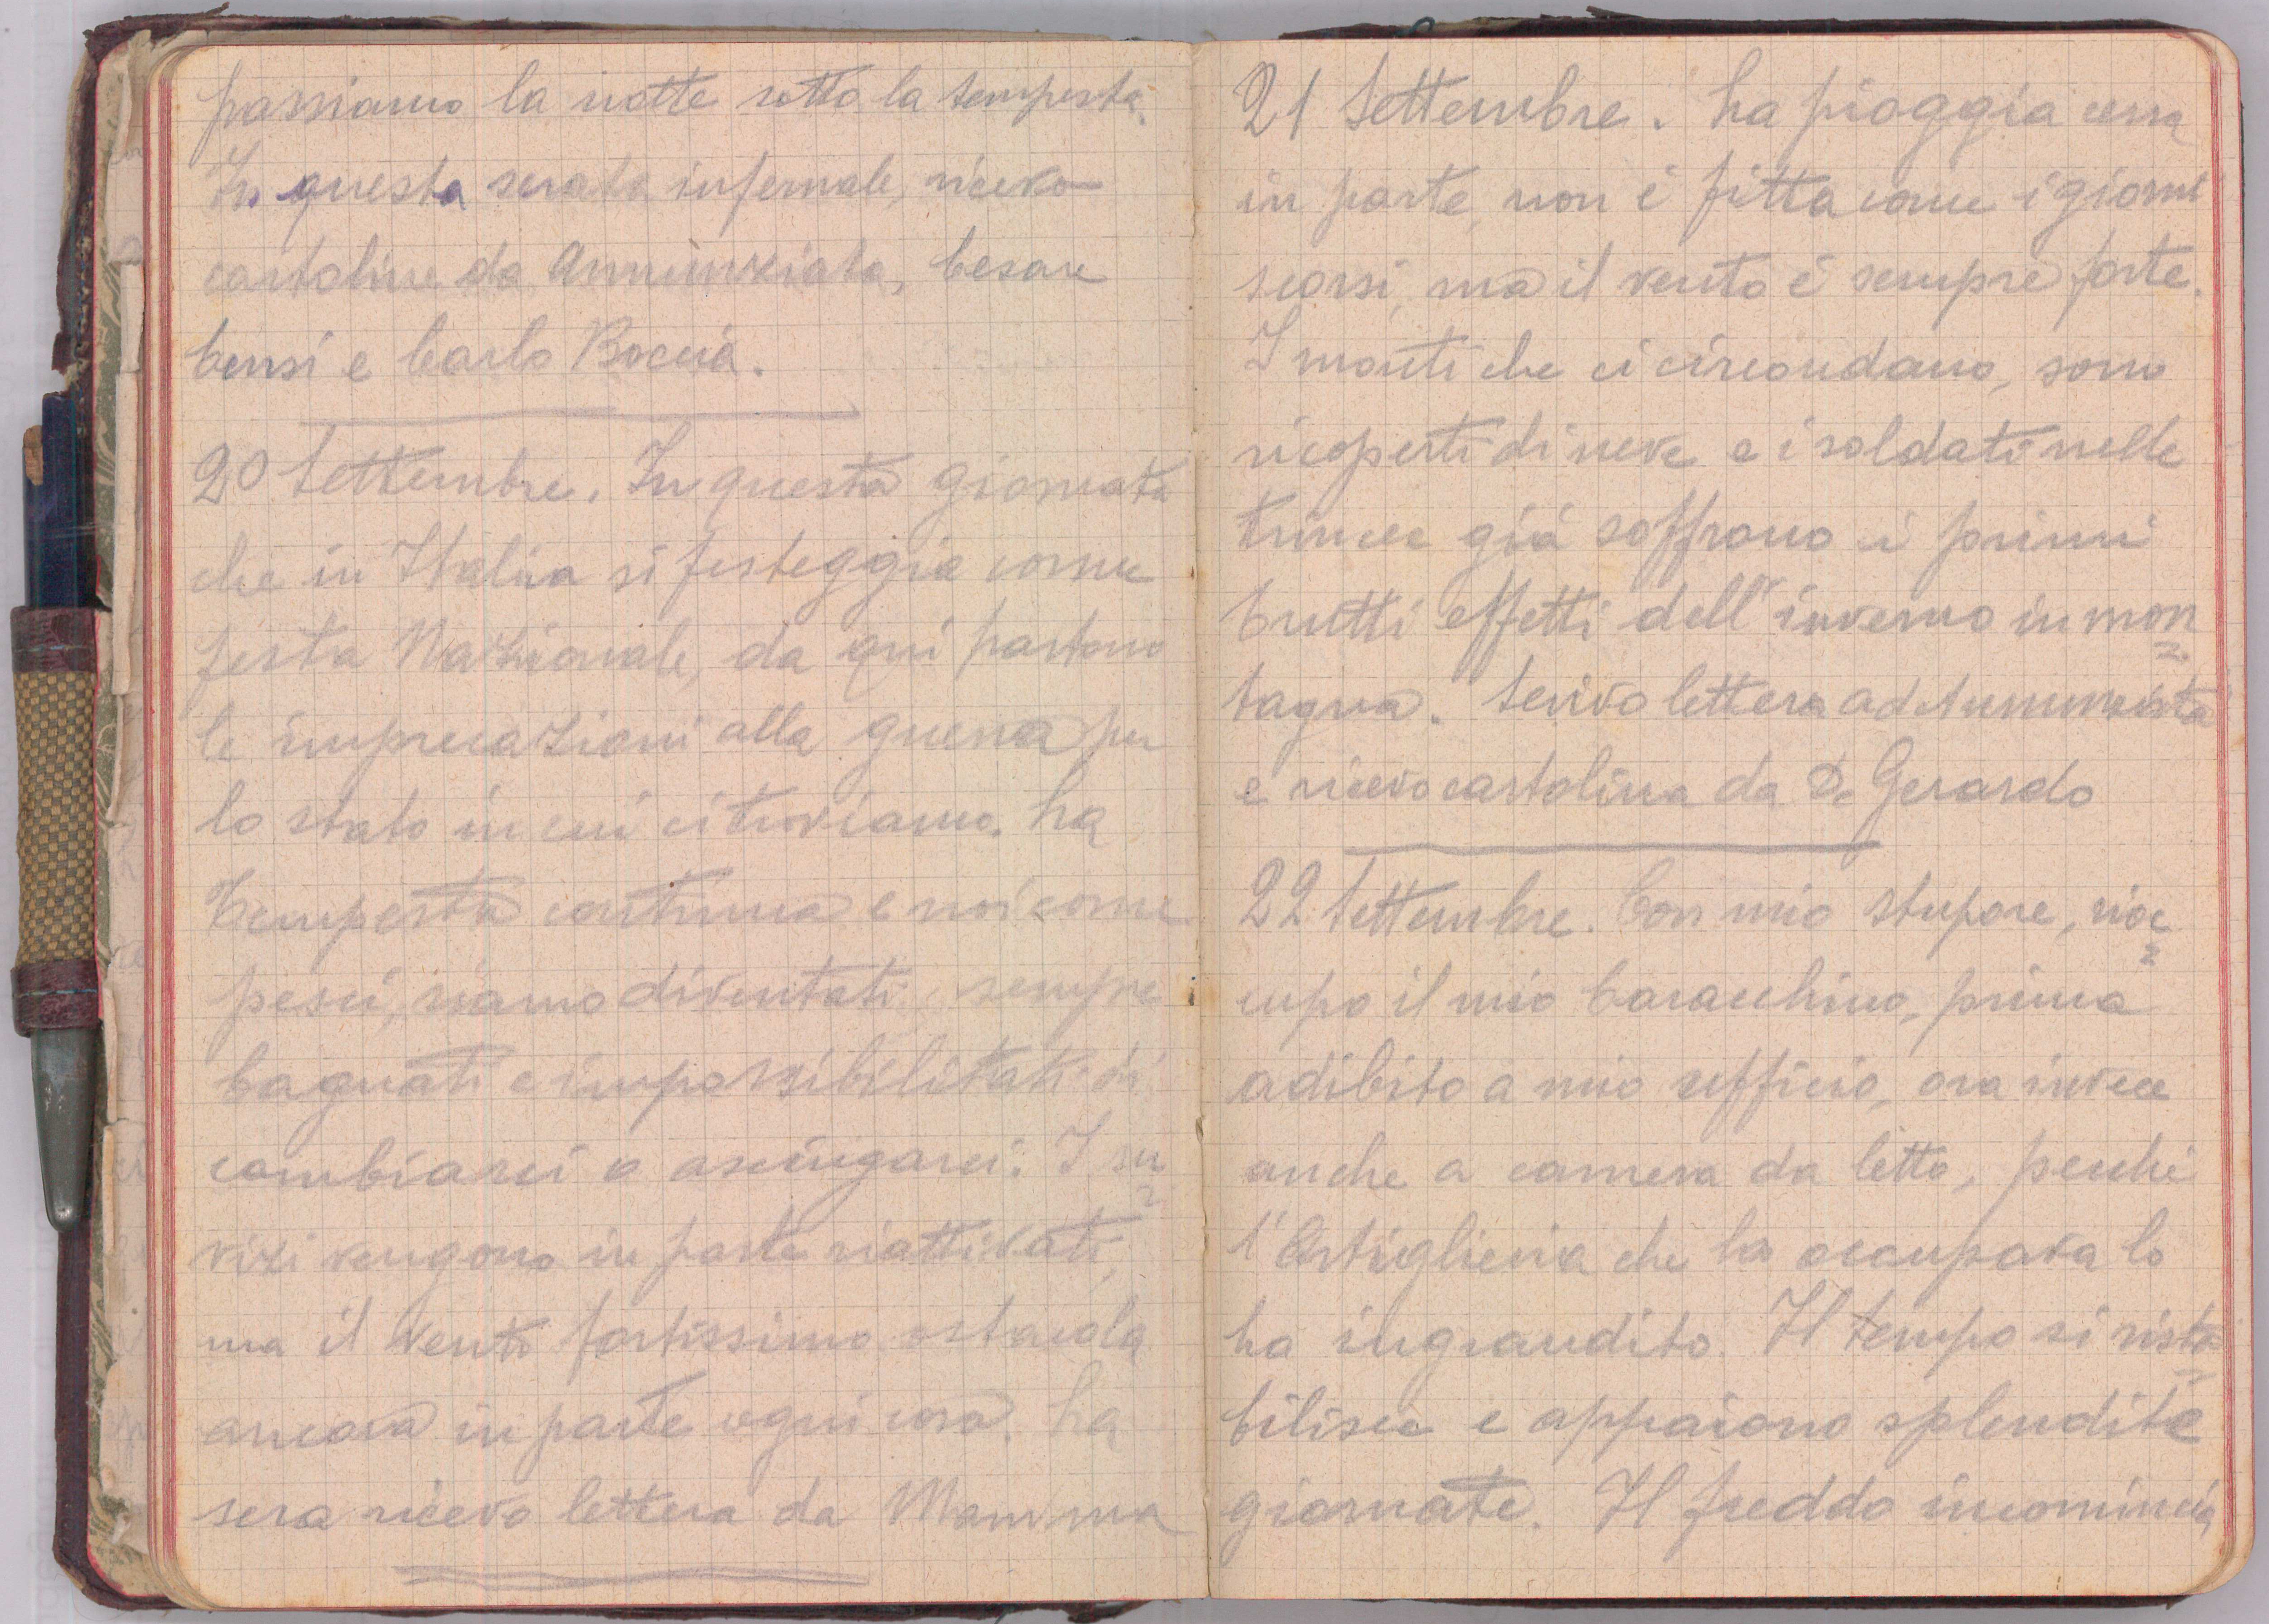 passiamo la notte sotto la tempesta.
In questa serata infernale, ricevo
cartoline da Annunziata, Cesare
Censi e Carlo Boccia.
20 Settembre. In questa giornata
che in Italia si festeggia come
festa Nazionale, da qui partono
le imprecazioni alla guerra per
lo stato in cui ci troviamo. La
tempesta continua e noi come
pesci, siamo diventati, sempre
bagnati e impossibilitati di
cambiarci o asciugarci. I ser=
vizi vengono in parte riattivati,
ma il vento fortissimo ostacola
ancora in parte ogni cosa. La
sera ricevo lettera da Mamma
21 Settembre. La pioggia cessa
in parte, non è fitta come i giorni
scorsi, ma il vento è sempre forte.
I monti che ci circondano, sono
ricoperti di neve e i soldati nelle
trincee già soffrono i primi
brutti effetti dell'inverno in mon=
tagna. Scrivo lettera ad Annunziata
e ricevo cartolina da D. Gerardo
22 Settembre. Con mio stupore, rioc=
cupo il mio baracchino, prima
adibito a mio ufficio, ora invece
anche a camera da letto, perché
l'Artiglieria che lo occupava lo
ha ingrandito. Il tempo si rista=
bilisce e appaiono splendite
giornate. Il freddo incomincia